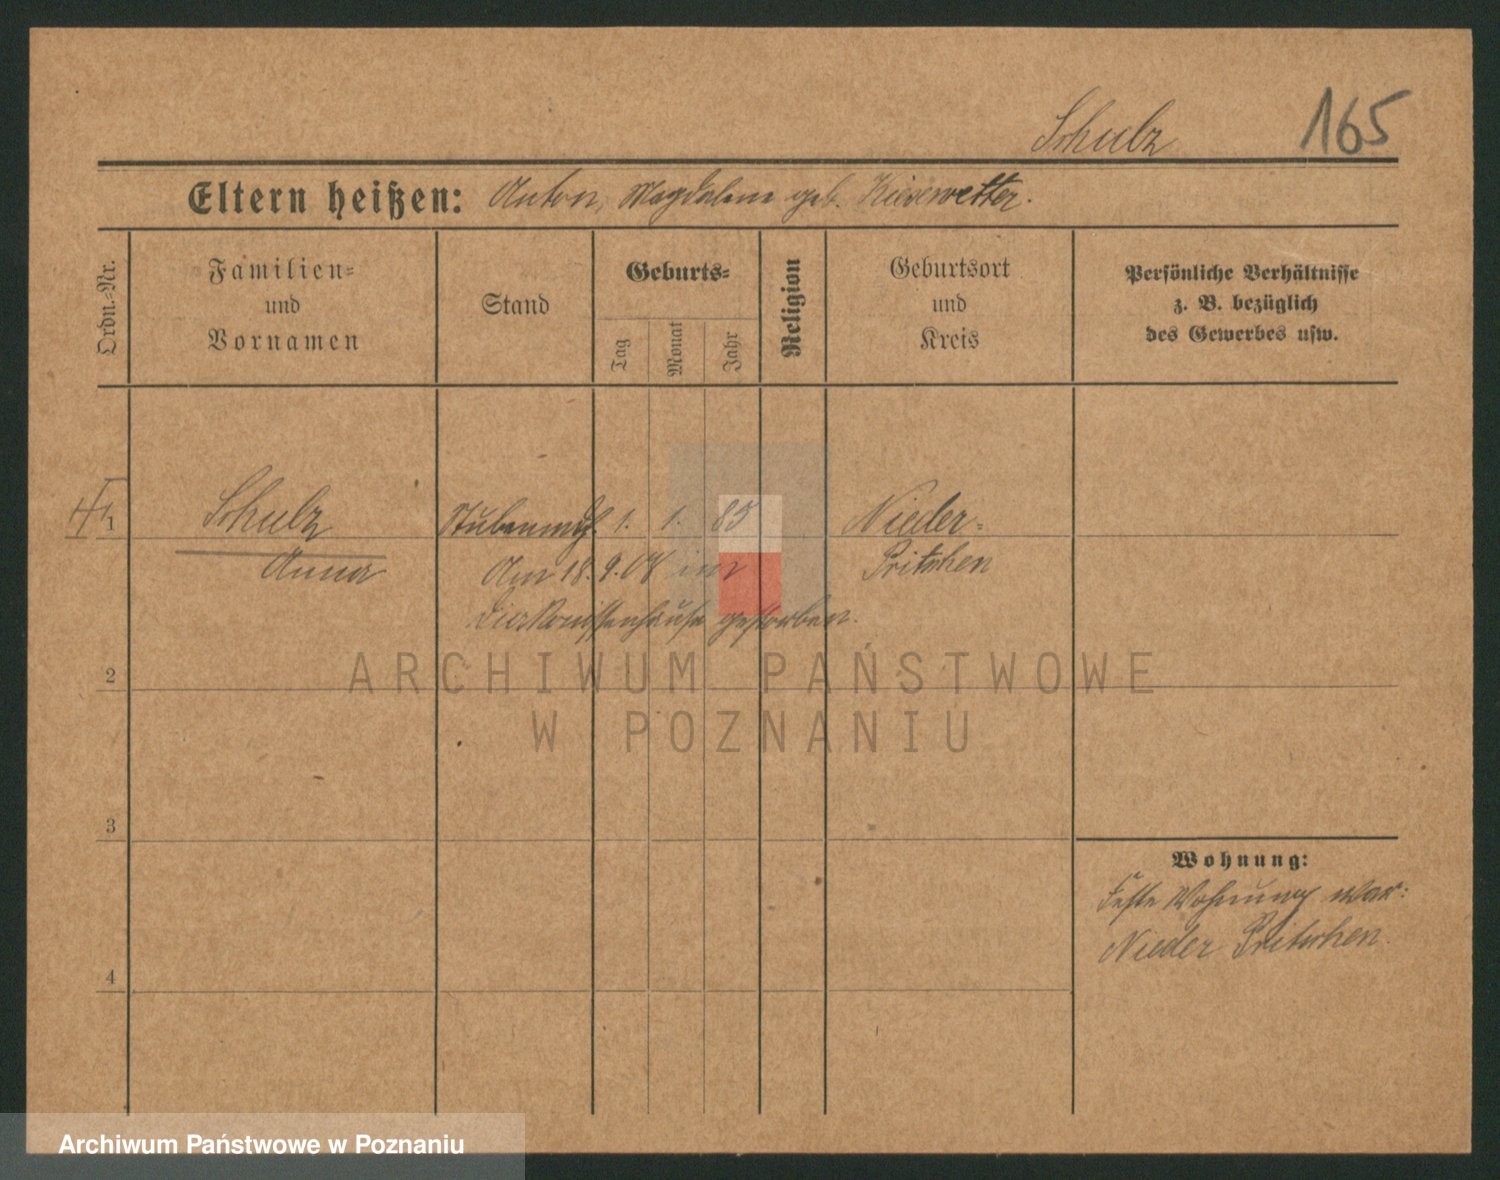 Schulz 165
Eltern heißen: Anton, Magdalene geb. Kiesewetter.
Ordn.-Nr.
Familien-
und
Vornamen
Stand
Geburts-
Tag
Monat
Jahr
Religion
Geburtsort
und
Kreis
Persönliche Verhältnisse
z. B. bezüglich
des Gewerbes usw.
1 Schulz Stubenmdch. 1. 1. 85 Nieder-
Anna Am 18.9.08 im Pritschen
Diakonissenhause gestorben.
2
3
4
Wohnung:
Feste Wohnung war:
Nieder Pritschen.
ARCHIWUM PAŃSTWOWE
W POZNANIU
Archiwum Państwowe w Poznaniu